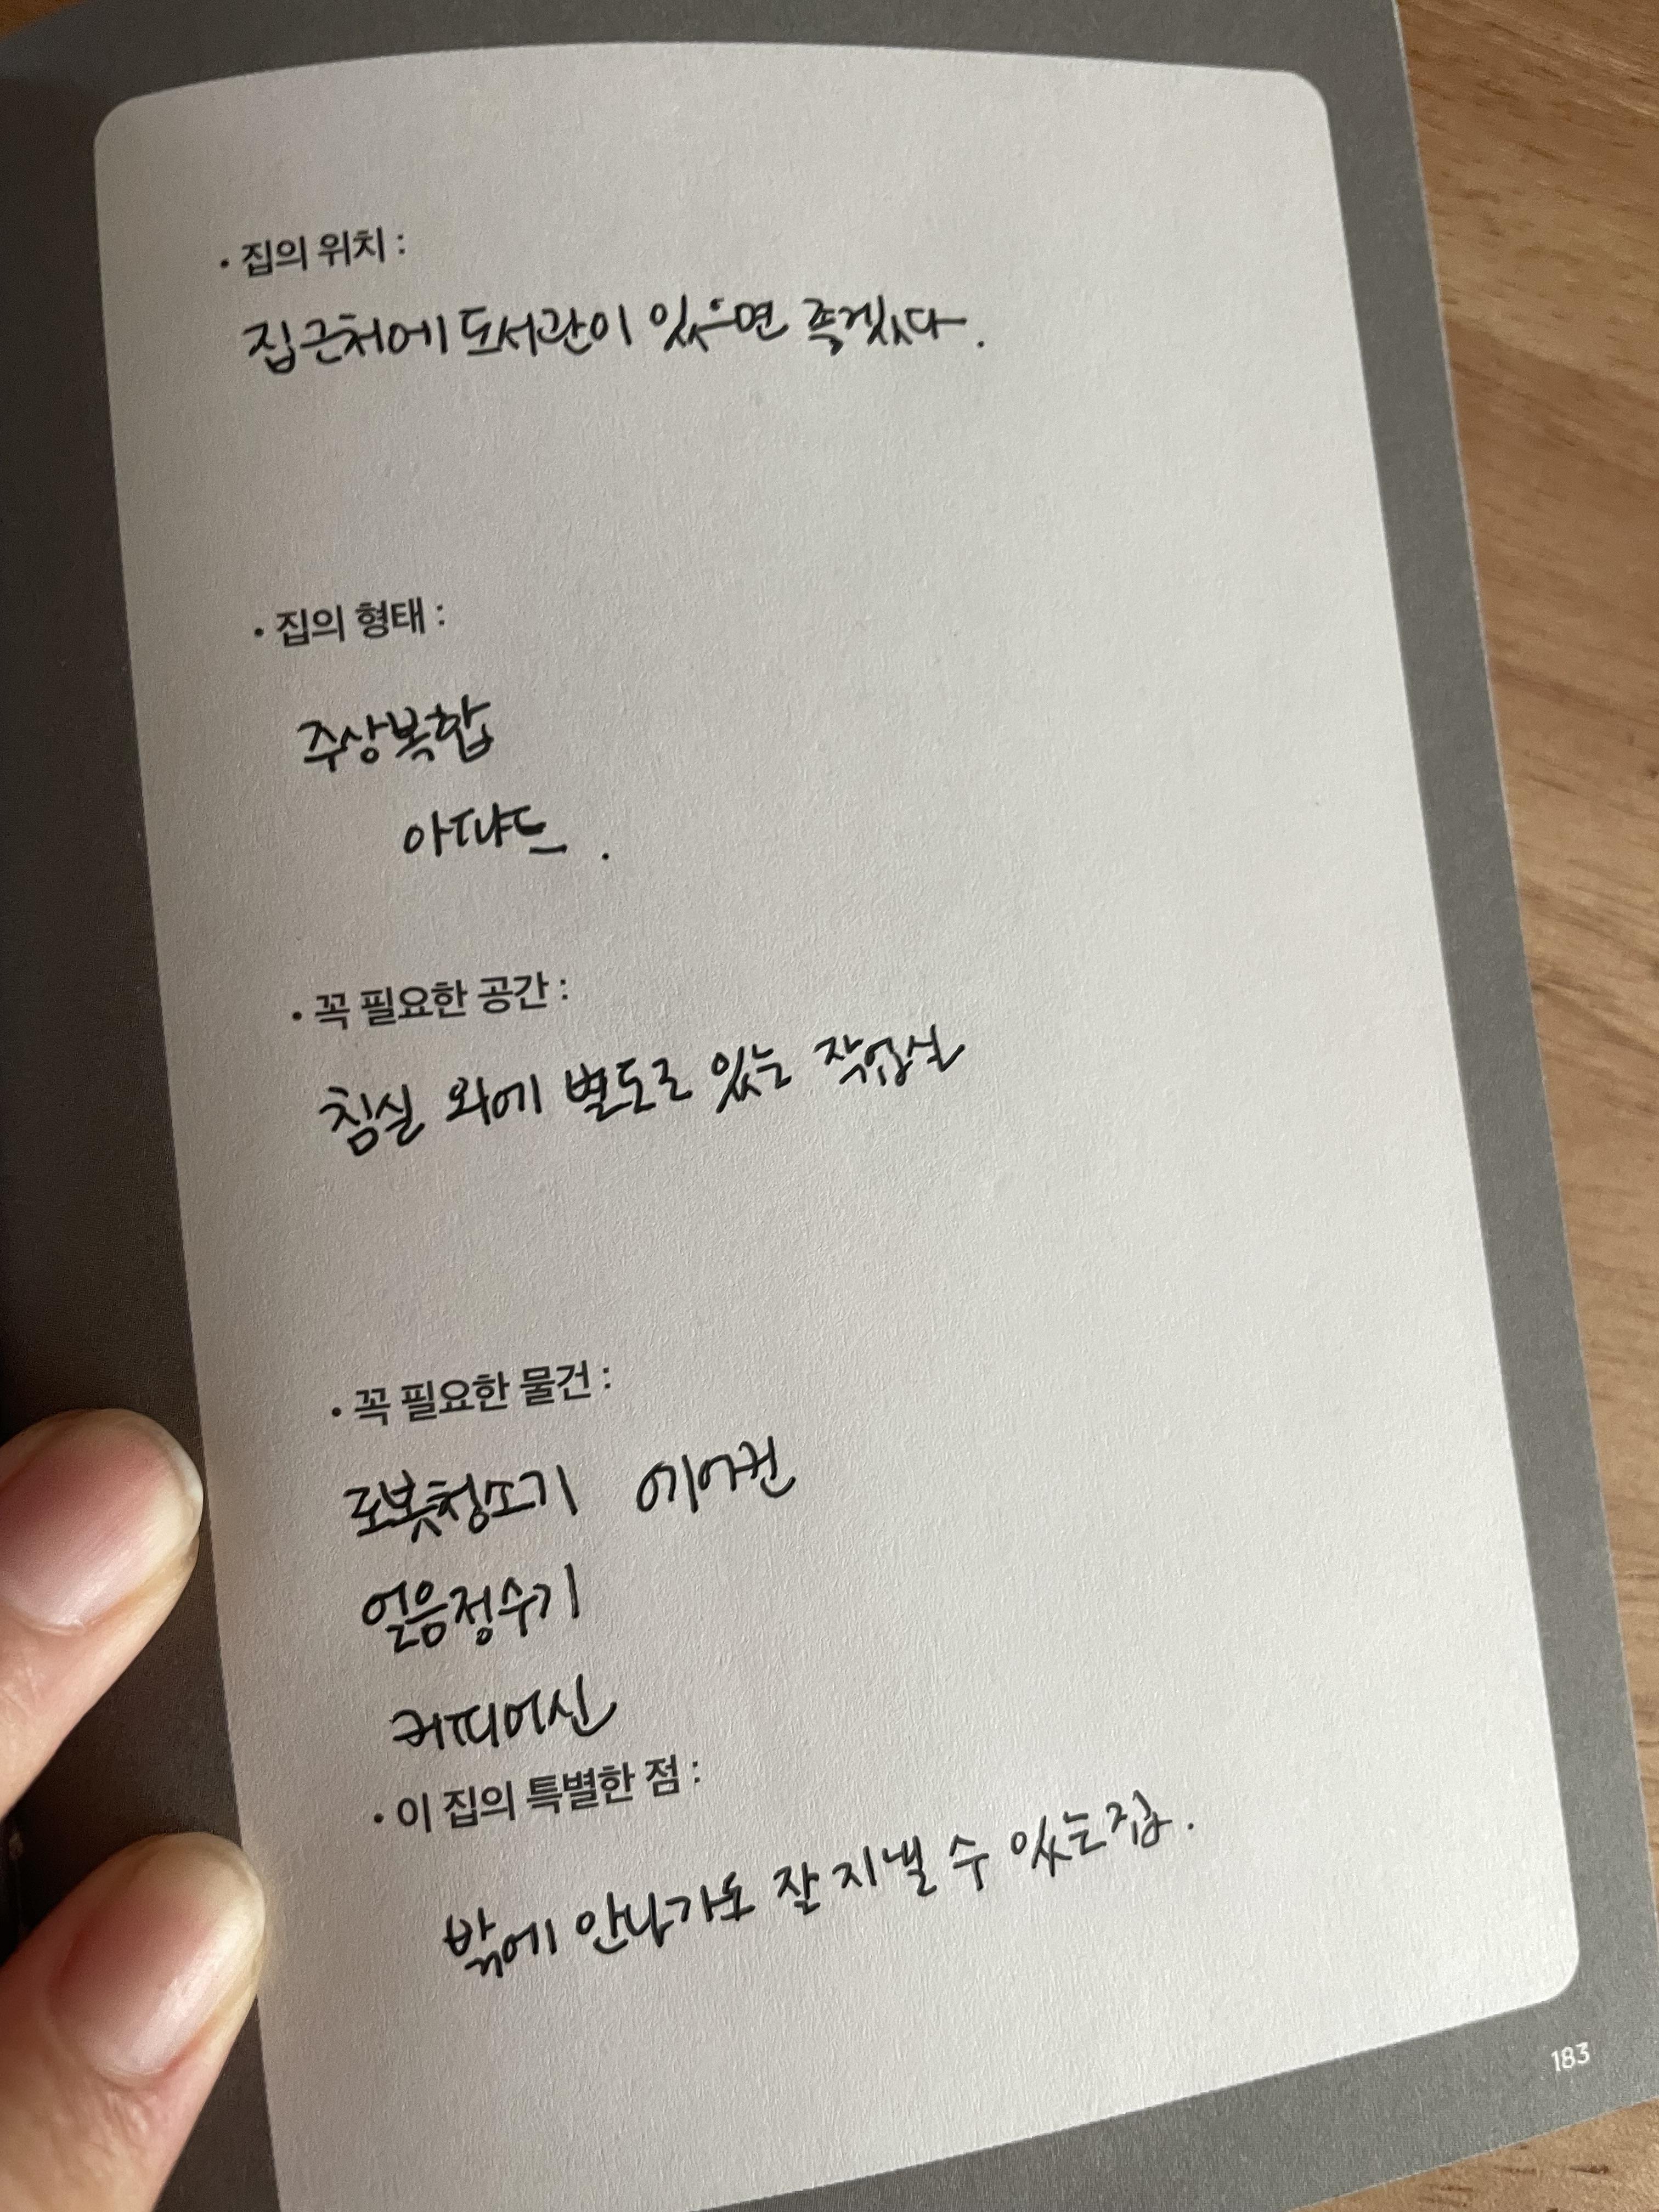 • 집의 위치 :
집근처에 도서관이 있으면 좋겠다.
• 집의 형태 :
주상복합
아파트.
• 꼭 필요한 공간 :
침실 외에 별도로 있는 작업실
• 꼭 필요한 물건 :
로봇청소기 에어컨
얼음정수기
커피머신
• 이 집의 특별한 점 :
밖에 안나가도 잘 지낼 수 있는집.
183